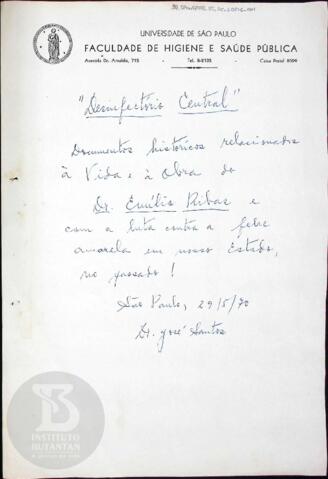 UNIVERSIDADE DE SÃO PAULO
FACULDADE DE HIGIENE E SAÚDE PÚBLICA
Avenida Dr. Arnaldo, 715 - Tel. 8-2125 - Caixa Postal 8099
"Desinfectório Central"
Documentos históricos relacionados
à Vida e à Obra do
Dr. Emílio Ribas e
com a luta contra a febre
amarela em nosso Estado,
no passado!
São Paulo, 29/5/70
Dr. José Santos
INSTITUTO
BUTANTAN